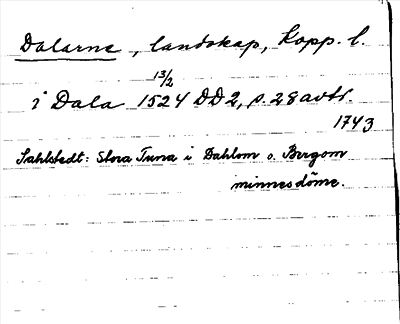 Dalarne, landskap, Kopp. l.
13/2
i Dala 1524 DD2, s. 28 avtr.
1743
Sahlstedt: Stora Tuna i Dahlom o. Bergom
minnesdöme.